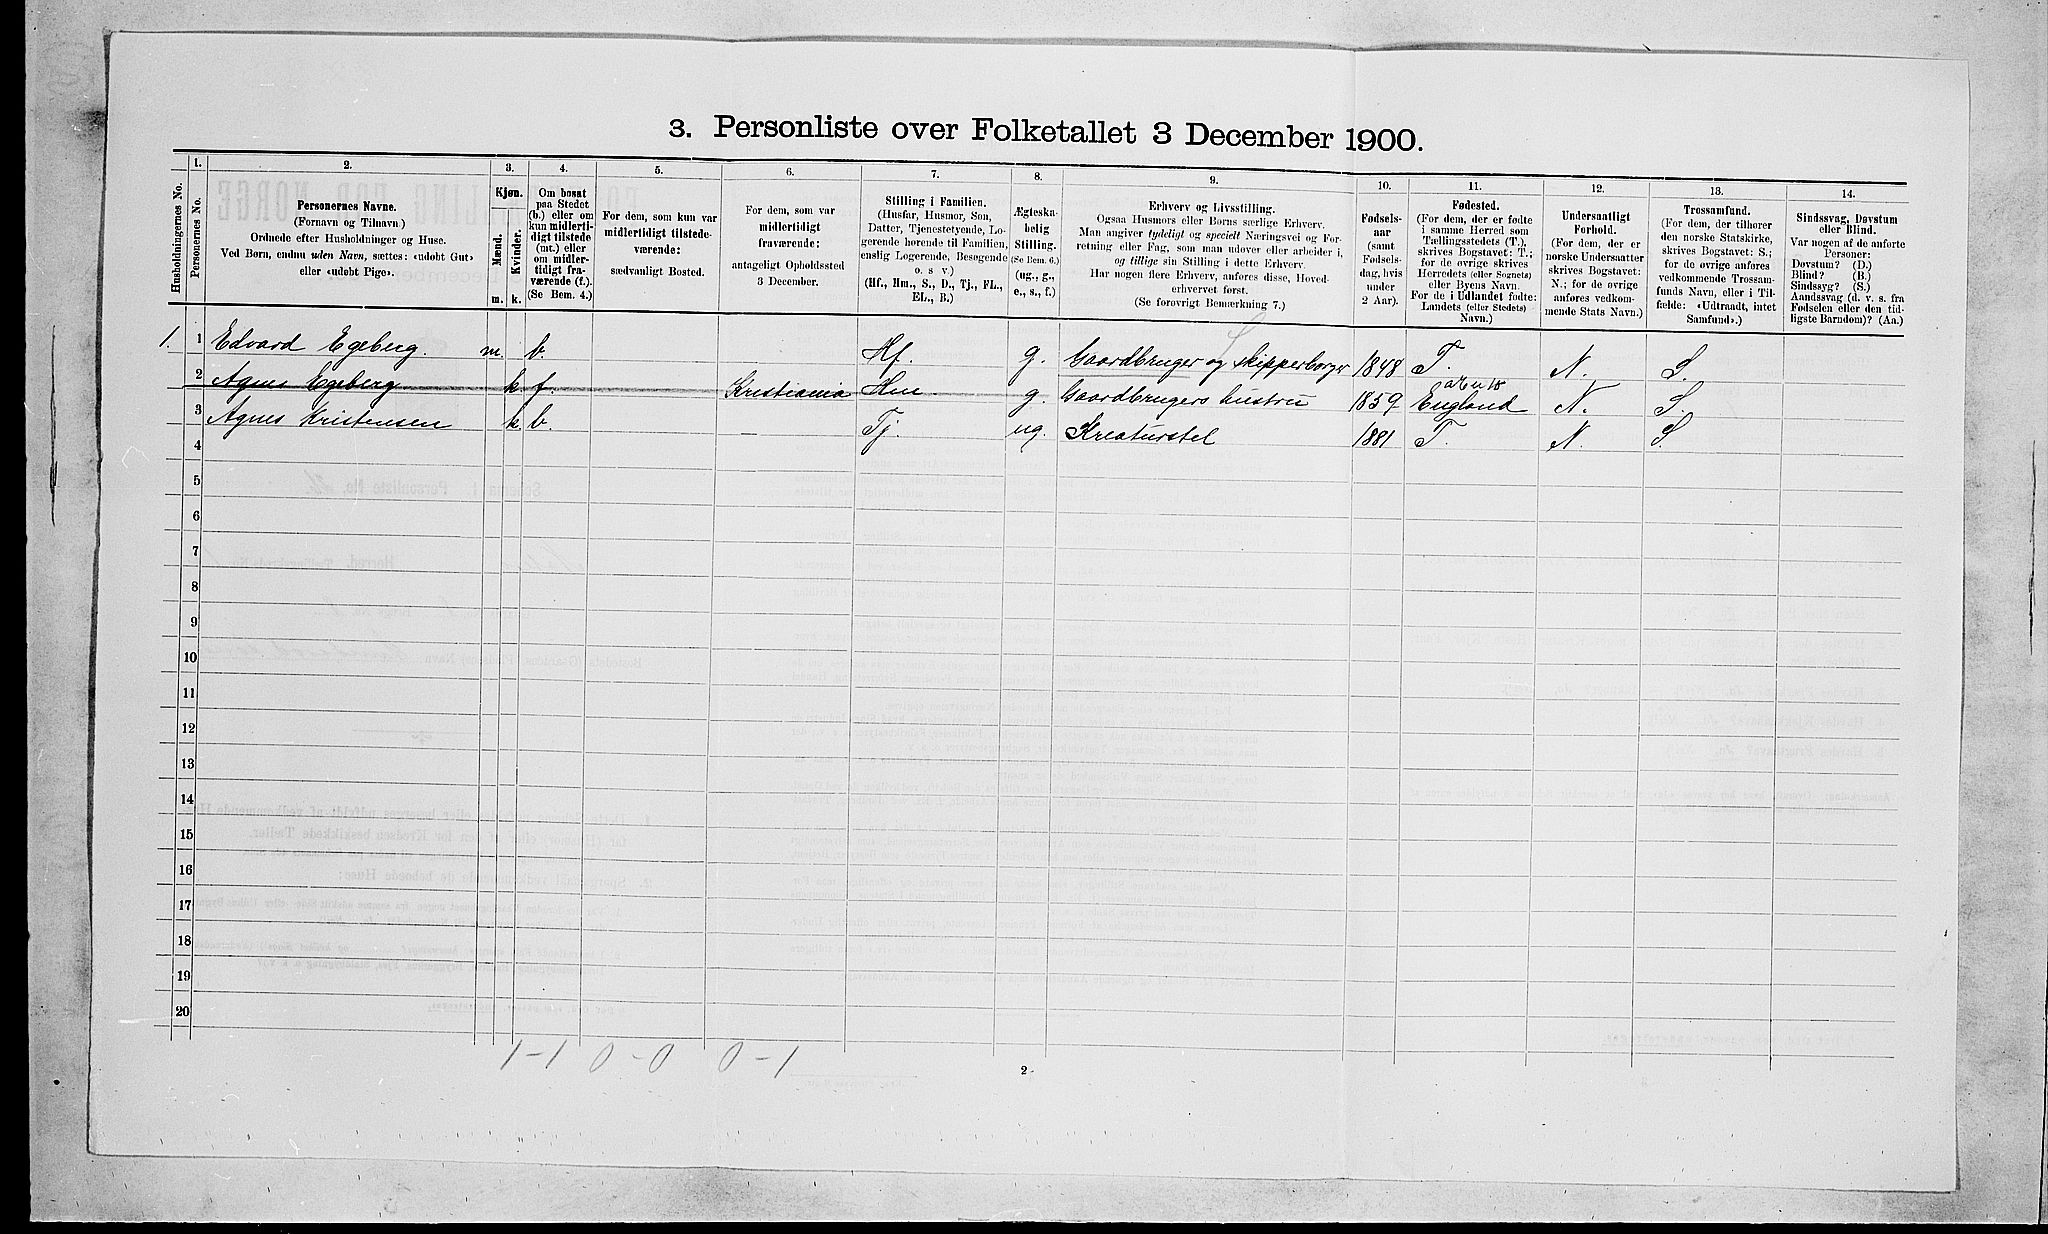 3. Personliste over Folketallet 3 December 1900.
Husholdningernes No.
1.
Personernes No.
2.
Personernes Navne.
(Fornavn og Tilnavn)
Ordnede efter Husholdninger og Huse.
Ved Børn, endnu uden Navn, sættes: «udøbt Gut»
eller «udøbt Pige».
3.
Kjøn.
Mænd.
Kvinder.
m. k.
4.
Om bosat
paa Stedet
(b.) eller om
kun midlerti-
digt tilstede
(mt.) eller
om midler-
tidigt fra-
værende (f.).
(Se Bem. 4.)
5.
For dem, som kun var
midlertidigt tilstede-
værende:
sædvanligt Bosted.
6.
For dem, som var
midlertidigt
fraværende:
antageligt Opholdssted
3 December.
7.
Stilling i Familien.
(Husfar, Husmor, Søn,
Datter, Tjenestetyende, Lo-
gerende hørende til Familien,
enslig Logerende, Besøgende
o. s v.)
(Hf., Hm., S., D., Tj., FL.,
EL., B.)
8.
Ægteska-
belig
Stilling.
(Se Bem. 6.)
(ug., g.,
e., s., f.)
9.
Erhverv og Livsstilling.
Ogsaa Husmors eller Børns særlige Erhverv.
Man angiver tydeligt og specielt Næringsvei og For-
retning eller Fag, som man udøver eller arbeider i,
og tillige sin Stilling i dette Erhverv.
Har nogen flere Erhverv, anføres disse, Hoved-
erhvervet først.
(Se forøvrigt Bemerkning 7.)
10.
Fødsels-
aar
(samt
Fødsels-
dag, hvis
under
2 Aar).
11.
Fødested.
(For dem, der er fødte
i samme Herred som
Tællingsstedets (T.),
skrives Bogstavet: T.;
for de øvrige skrives
Herredets (eller Sognets)
eller Byens Navn.
For de i Udlandet fødte:
Landets (eller Stedets)
Navn.)
12.
Undersaatligt
Forhold.
(For dem, der er
norske Undersaatter
skrives Bogstavet:
N.; for de øvrige
anføres vedkom-
mende Stats Navn.)
13.
Trossamfund.
(For dem, der tilhører
den norske Statskirke,
skrives Bogstavet: S.;
for de øvrige anføres
vedkommende Trossam-
funds Navn, eller i Til-
fælde: «Udtraadt, intet
Samfund».)
14.
Sindssvag, Døvstum
eller Blind.
Var nogen af de anførte
Personer:
Døvstum? (D.)
Blind? (B.)
Sindssyg? (S.)
Aandssvag (d. v. s. fra
Fødselen eller den tid-
ligste Barndom)? (Aa.)
1. 1 Edvard Egeberg. m. b. Hf. g. Gaardbruger og skipperborger 1848 T. N. S.
2 Agnes Egeberg k f. Kristiania Hm g. Gaardbrugers hustru 1859 England N. S.
3 Agnes Kristensen k. b. Tj. ug. Kreaturstel 1881 T. N. S.
4
5
6
7
8
9
10
11
12
13
14
15
16
17
18
19
20
1-1 0-0 0-1
2